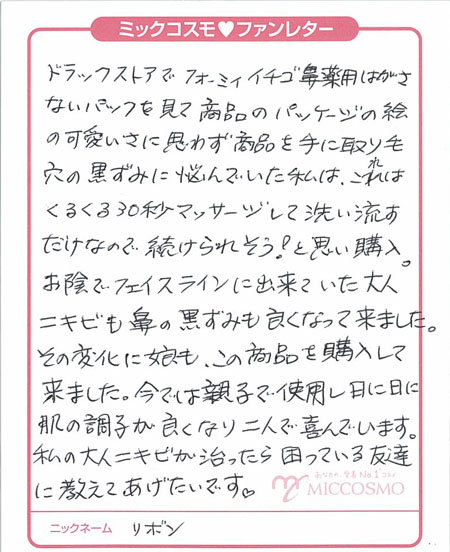 ミックコスモ♥ファンレター
ドラックストアでフォーミィイチゴ鼻薬用はがさ
ないパックを見て商品のパッケージの絵
の可愛いさに思わず商品を手に取り毛
穴の黒ずみに悩んでいた私は、これは
くるくる30秒マッサージして洗い流す
だけなので続けられそう!と思い購入。
お陰でフェイスラインに出来ていた大人
ニキビも鼻の黒ずみも良くなって来ました。
その変化に娘も、この商品を購入して
来ました。今では親子で使用し日に日に
肌の調子が良くなり二人で喜んでいます。
私の大人ニキビが治ったら困っている友達
に教えてあげたいです。
あなたの、笑顔No.1コスメ
MICCOSMO
ニックネーム リボン